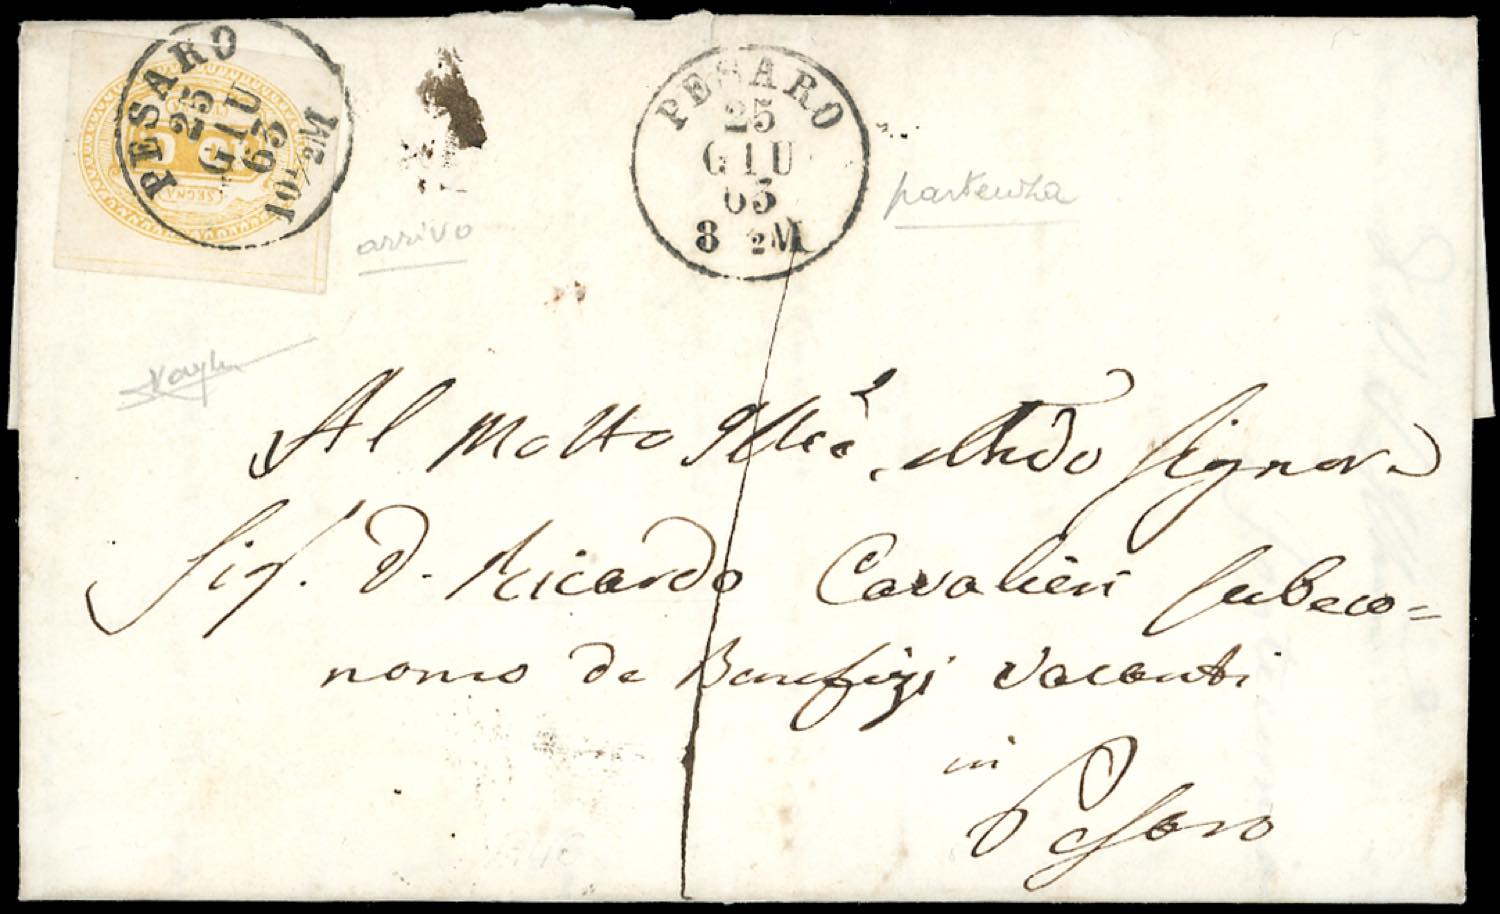 PESARO
25
GIU
63
10 1/2M
PESARO
25
GIU
63
8 ½M
partenza
arrivo
Al Molto Illre Mdo Signore
Sig. D. Ricardo Cavalieri Subeco=
nomo de Benefizj Vacanti
in
Pesaro
SEGNA